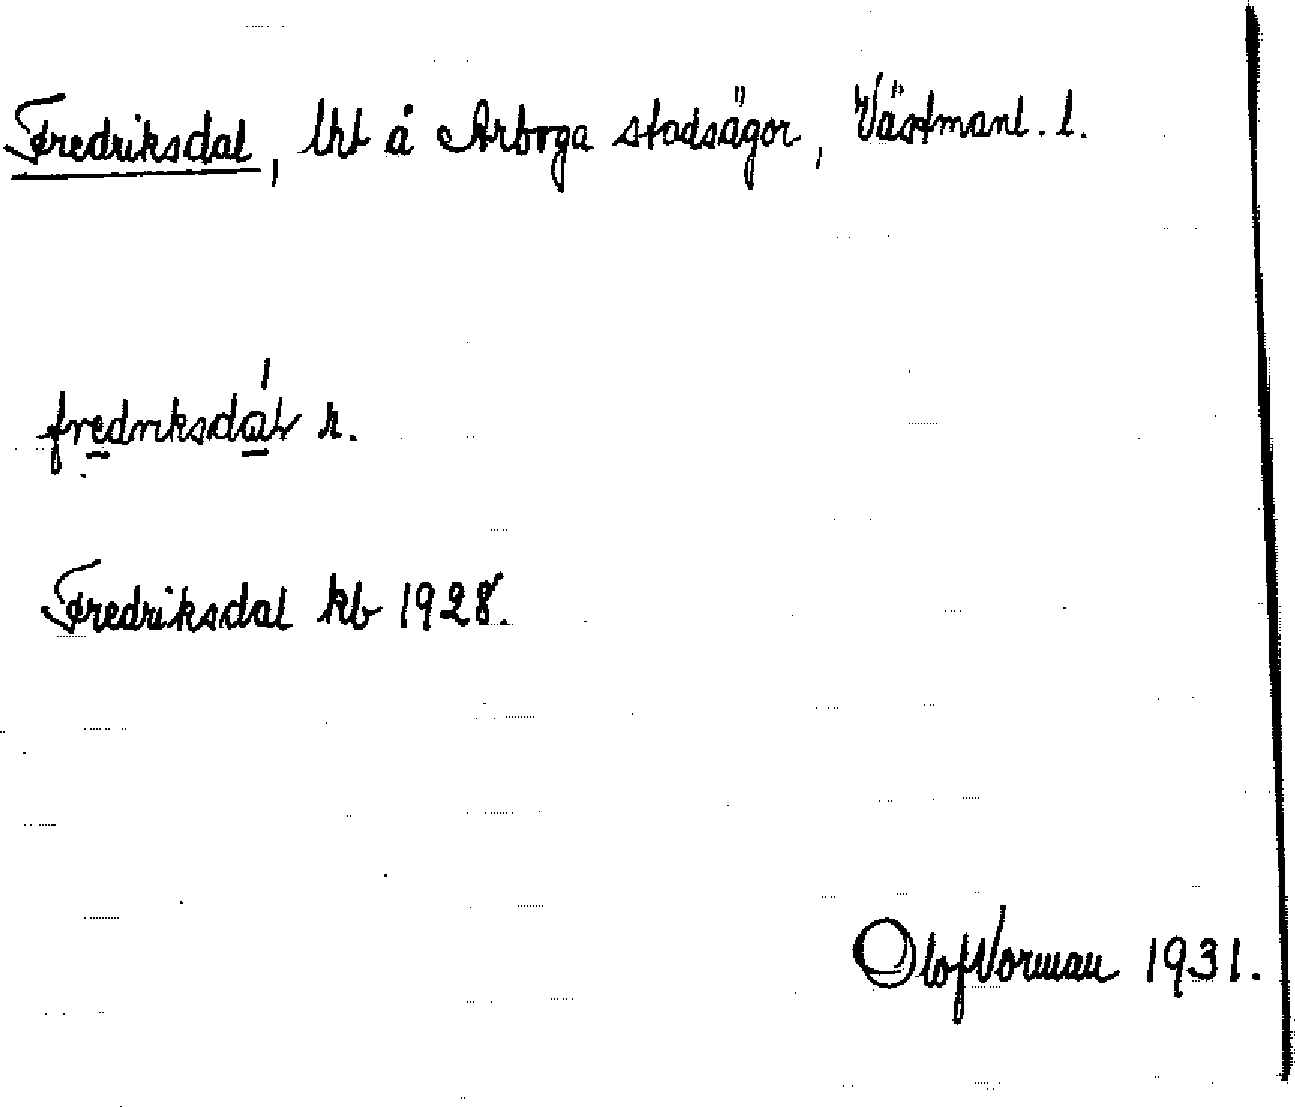 Fredriksdal, lht å Arboga stadsägor, Västmanl. l.
fredriksdál r.
Fredriksdal kb 1928.
Olof Norman 1931.